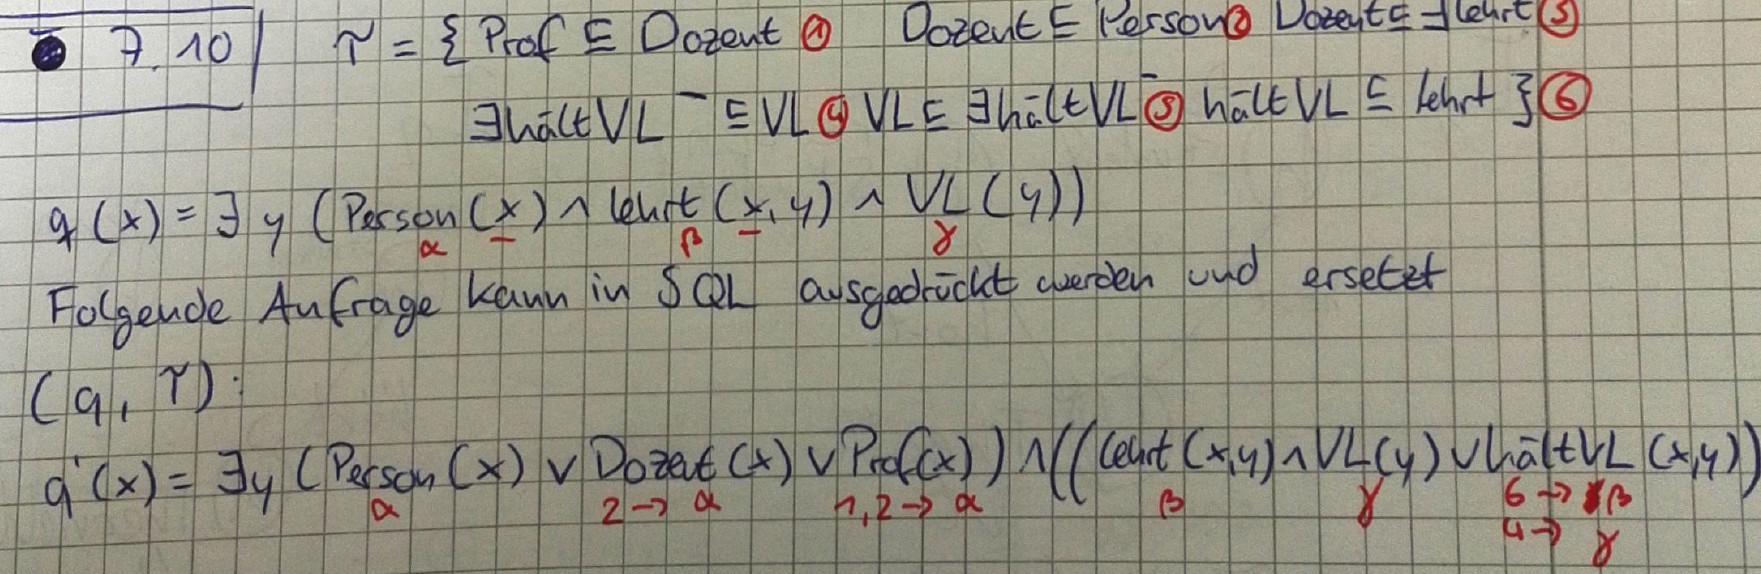 7.10 | τ = { Prof ⊑ Dozent ① Dozent ⊑ Person ② Dozent ⊑ ∃lehrt ③
∃hältVL⁻ ⊑ VL ④ VL ⊑ ∃hältVL⁻ ⑤ hält VL ⊑ lehrt } ⑥
q(x) = ∃y (Person(x) ∧ lehrt(x,y) ∧ VL(y))
α β γ
Folgende Aufrage kann in SQL ausgedrückt werden und ersetzt
(q, τ):
q'(x) = ∃y (Person(x) ∨ Dozent(x) ∨ Prof(x)) ∧ ((lehrt(x,y) ∧ VL(y) ∨ hältVL(x,y))
α 2→α 1,2→α β γ 6→β
4→γ